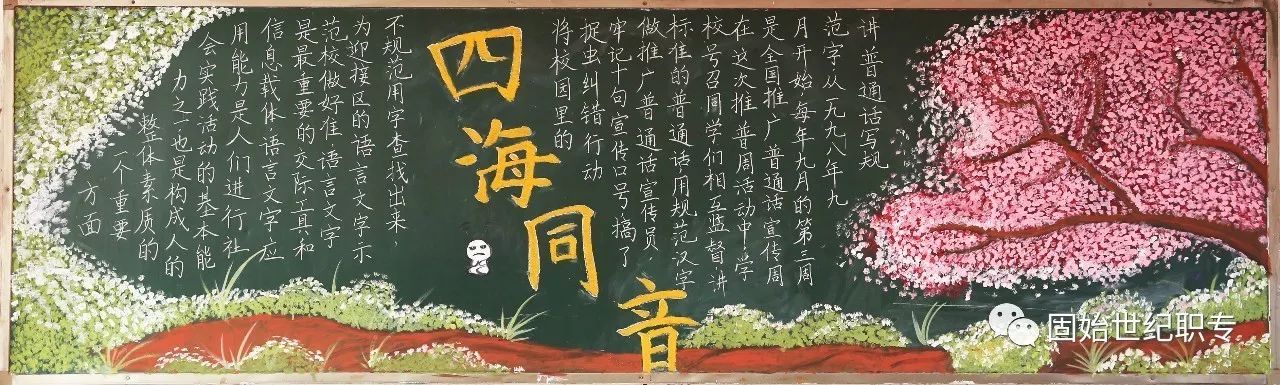 讲普通话写规
范字从一九九八年九
月开始每年九月的第三周
是全国推广普通话宣传周
在这次推普周活动中学
校号召同学们相互监督讲
标准的普通话用规范汉字
做推广普通话宣传员,
牢记十句宣传口号搞了
捉虫纠错行动
将校园里的
四海同音
不规范用字查找出来,
为迎接区的语言文字示
范校做好准 语言文字
是最重要的交际工具和
信息载体语言文字应
用能力是人们进行社
会实践活动的基本能
力之一也是构成人的
整体素质的
一个重要
方面
固始世纪职专